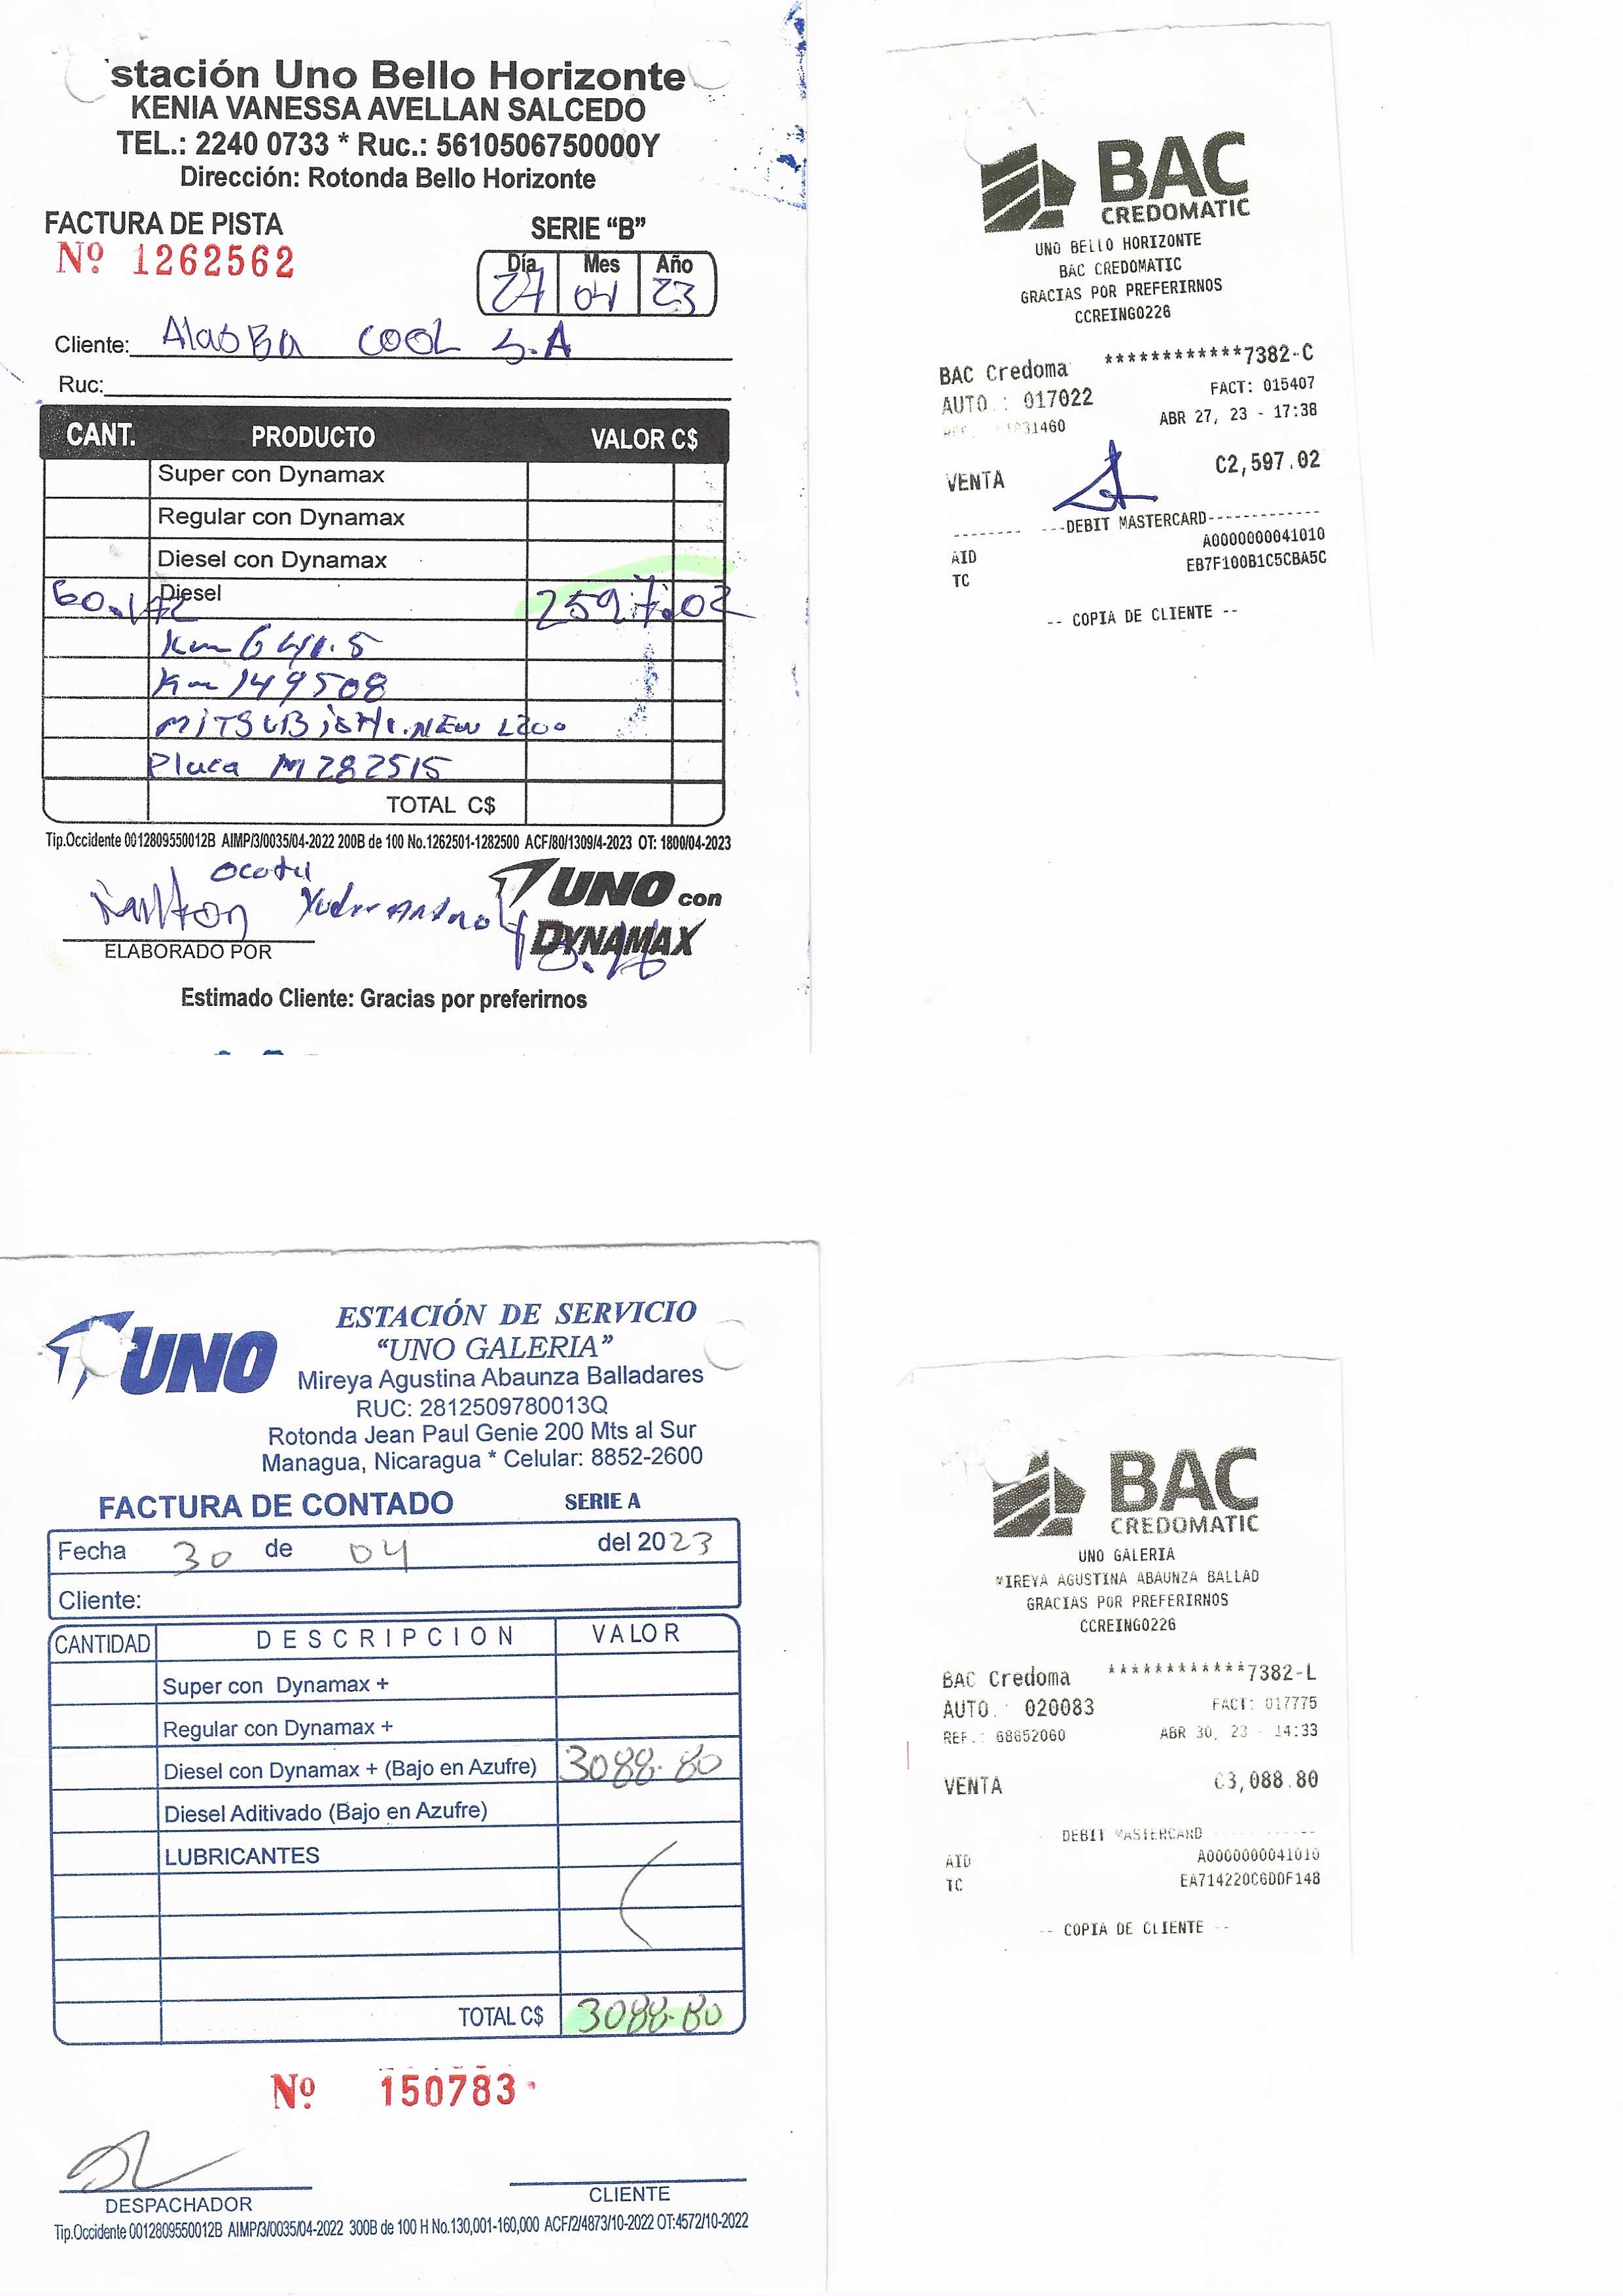 stación Uno Bello Horizonte
KENIA VANESSA AVELLAN SALCEDO
TEL.: 2240 0733 * Ruc.: 5610506750000Y
Dirección: Rotonda Bello Horizonte
FACTURA DE PISTA SERIE “B”
Nº 1262562
Día Mes Año
27 04 23
Cliente: COOL S.A
Ruc:
CANT. PRODUCTO VALOR C$
Super con Dynamax
Regular con Dynamax
Diesel con Dynamax
60.172 Diesel 2597.02
Km 641.5
Km 149508
MITSUBISHI.NEW L200
Placa M282515
TOTAL C$
Tip.Occidente 0012809550012B AIMP/3/0035/04-2022 200B de 100 No.1262501-1282500 ACF/80/1309/4-2023 OT: 1800/04-2023
UNO con
DYNAMAX
ELABORADO POR
Estimado Cliente: Gracias por preferirnos
BAC
CREDOMATIC
UNO BELLO HORIZONTE
BAC CREDOMATIC
GRACIAS POR PREFERIRNOS
CCREING0226
BAC Credoma ************7382-C
AUTO.: 017022 FACT: 015407
REF.: 31460 ABR 27, 23 - 17:38
VENTA C2,597.02
-------- ---DEBIT MASTERCARD-------------
AID A0000000041010
TC EB7F100B1C5CBA5C
-- COPIA DE CLIENTE --
UNO
ESTACIÓN DE SERVICIO
“UNO GALERIA”
Mireya Agustina Abaunza Balladares
RUC: 2812509780013Q
Rotonda Jean Paul Genie 200 Mts al Sur
Managua, Nicaragua * Celular: 8852-2600
FACTURA DE CONTADO SERIE A
Fecha 30 de 04 del 2023
Cliente:
CANTIDAD DESCRIPCION VALOR
Super con Dynamax +
Regular con Dynamax +
Diesel con Dynamax + (Bajo en Azufre) 3088.80
Diesel Aditivado (Bajo en Azufre)
LUBRICANTES
TOTAL C$ 3088.80
Nº 150783
DESPACHADOR CLIENTE
Tip.Occidente 0012809550012B AIMP/3/0035/04-2022 300B de 100 H No.130,001-160,000 ACF/2/4873/10-2022 OT:4572/10-2022
BAC
CREDOMATIC
UNO GALERIA
MIREYA AGUSTINA ABAUNZA BALLAD
GRACIAS POR PREFERIRNOS
CCREING0226
BAC Credoma ************7382-L
AUTO.: 020083 FACT: 017775
REF.: 68652060 ABR 30, 23 - 14:33
VENTA C3,088.80
DEBIT MASTERCARD
AID A0000000041010
TC EA714220C6DDF148
-- COPIA DE CLIENTE --